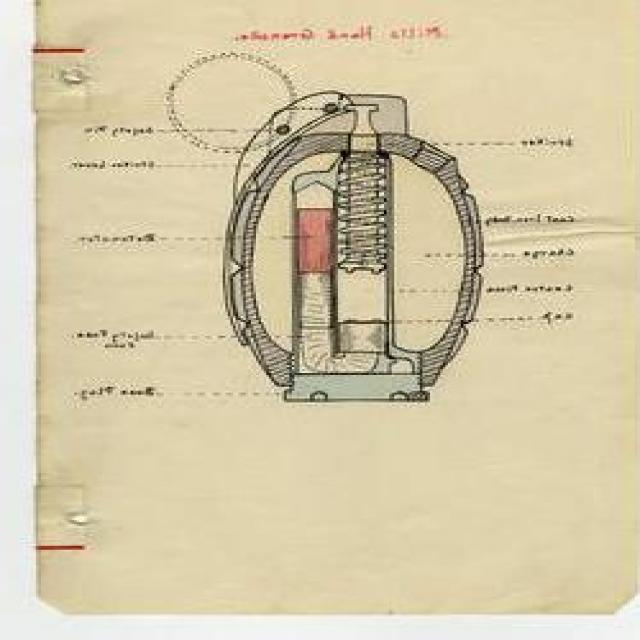 Mills Hand Grenade.
Safety Pin
Striker Lever
Detonator
Safety Fuse
Base Plug.
Striker
Cast Iron body
Charge
Centre Piece
Cap